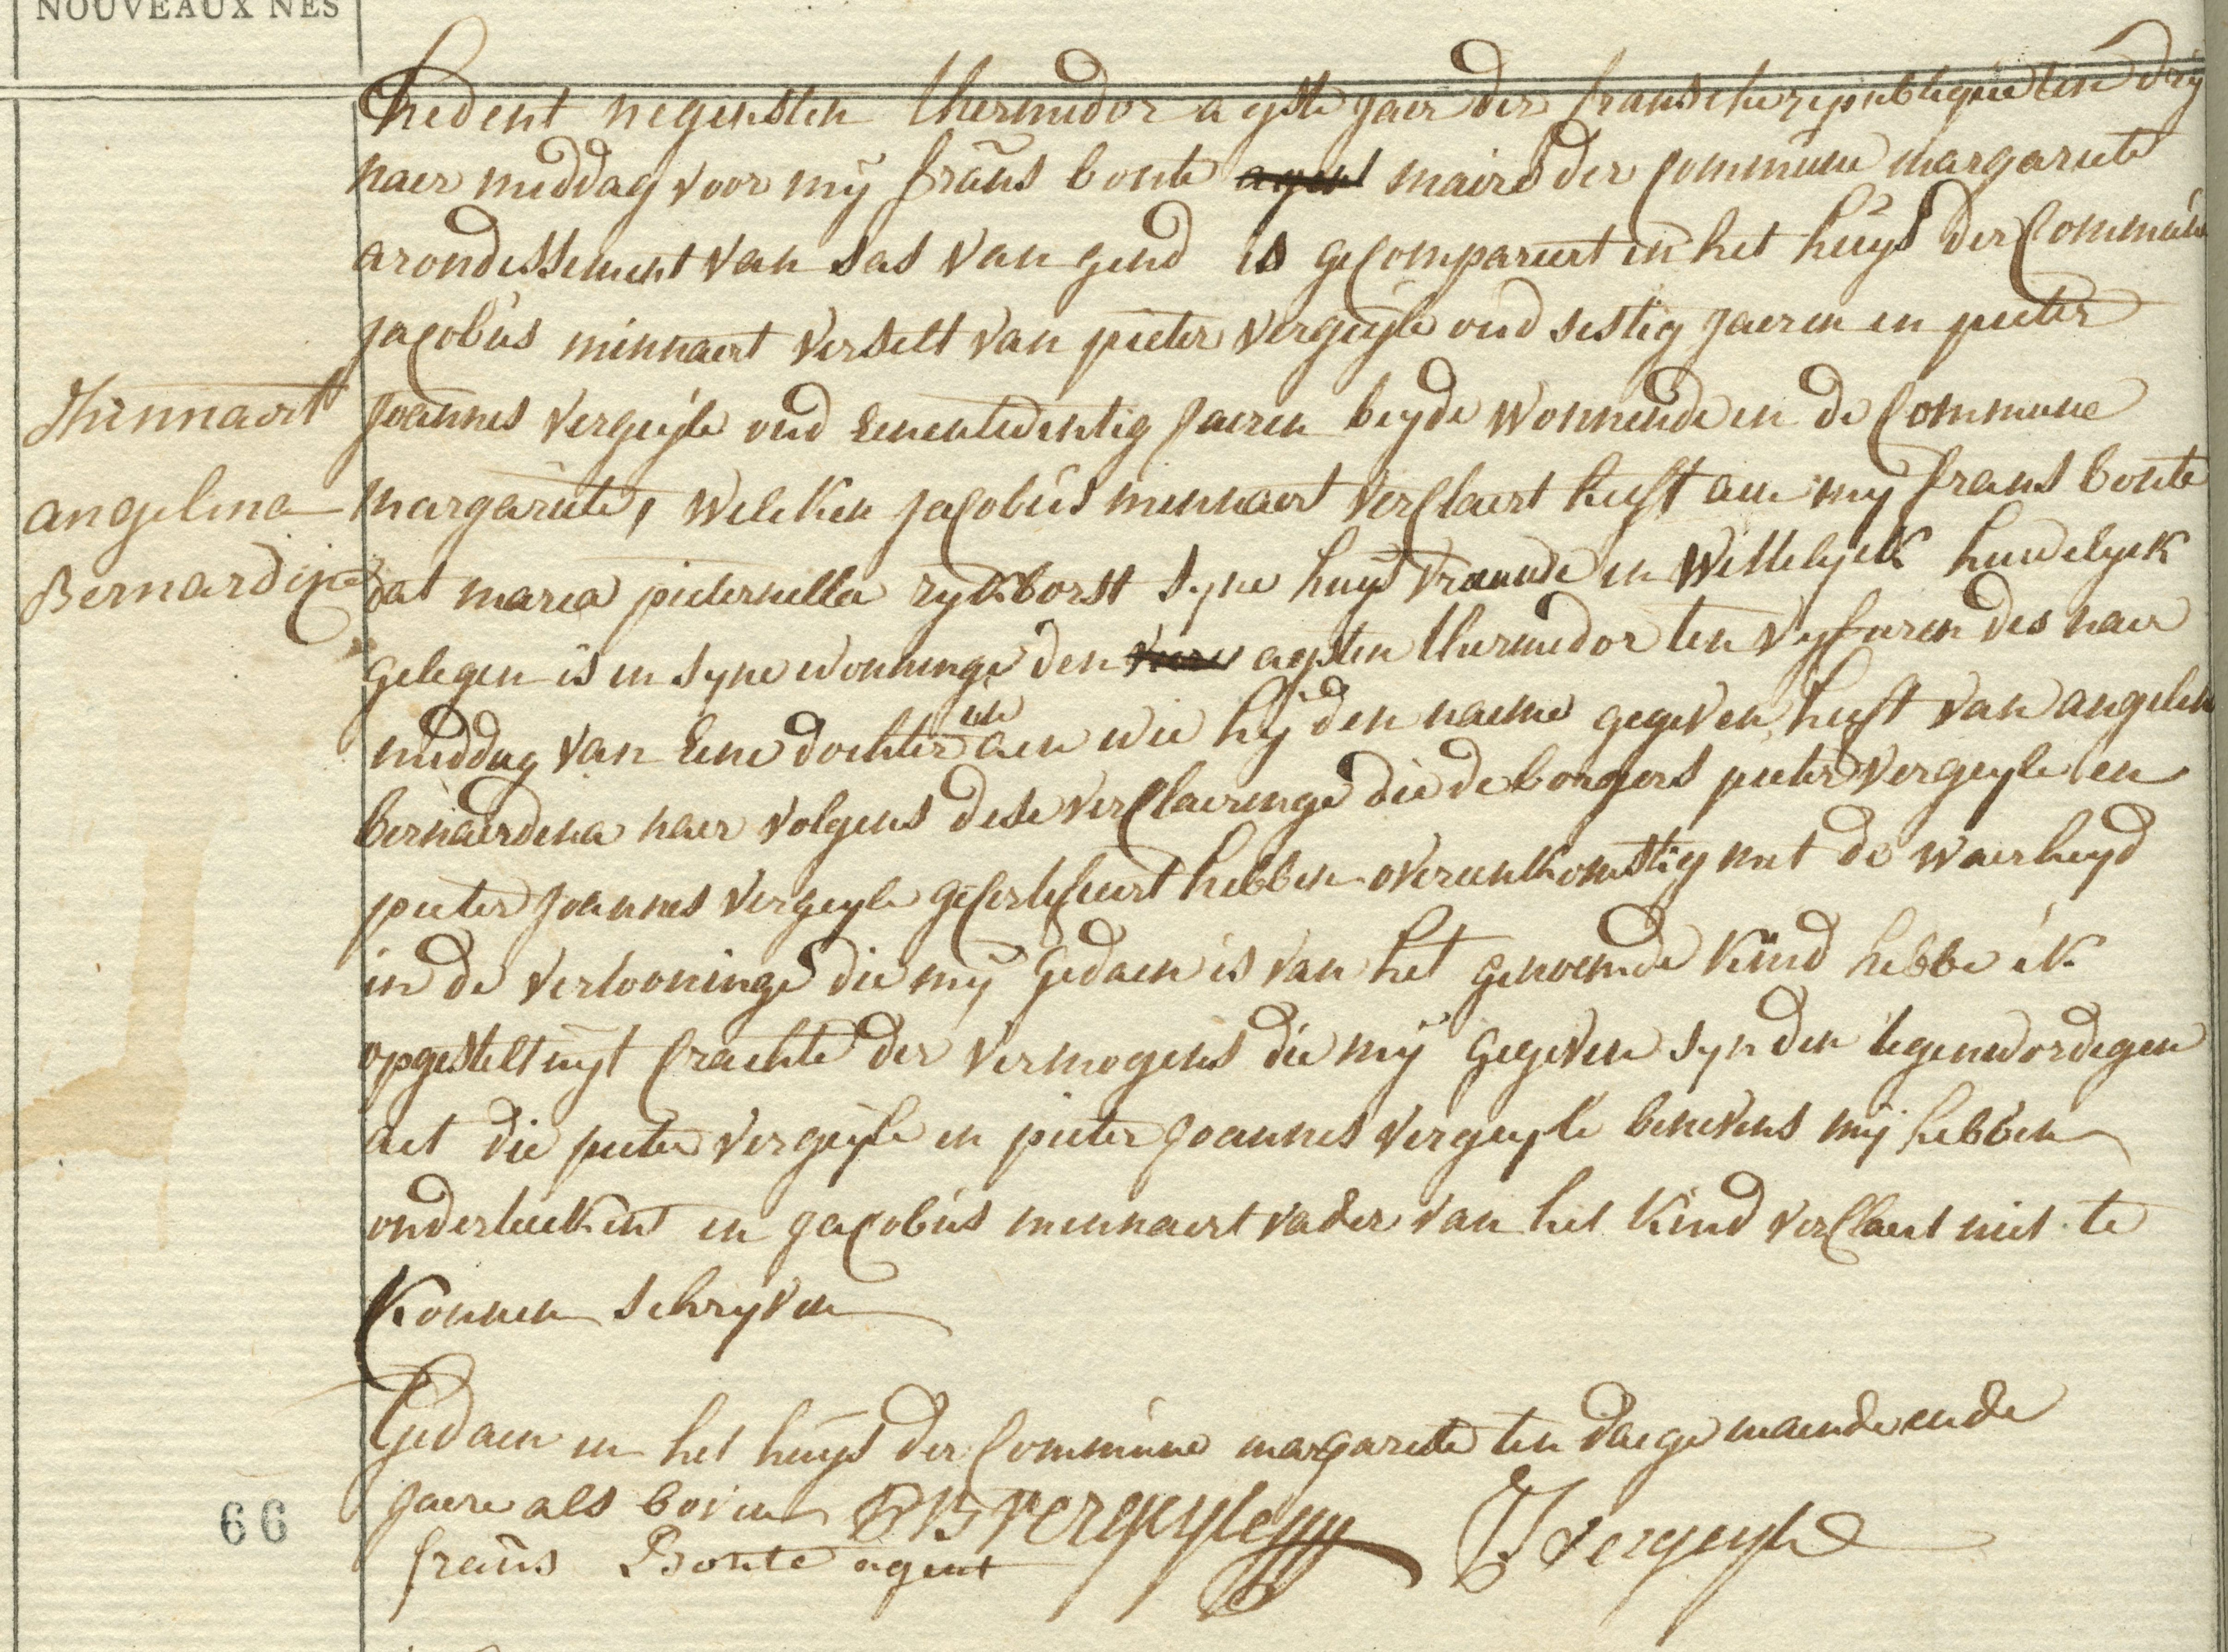 NOUVEAUX NÉS
heden negensten thermidor agste jaer der fransche republique ten dry
naer middag voor mij frans bonte agent maire der Commune margariete
arondissement van sas van gend is geCompareert in het huijs der Commune
jaCobus minnaert verselt van pieter vergeijle oud sestig jaeren en pieter
joannes vergeijle oud eenentwintig jaeren beyde wonnende in de Commune
Minnaert
margariete, welcken jaCobus minnaert verClaert heeft aen mij frans bonte
angelina
dat maria pieternella rykborst syne huysvrauwe in wittelyck huwelyck
Bernardina
gelegen is in syne wonninge den agsten thermidor ten vyf uren des naer
middag van eene dochter aen wie hij den naeme gegeven heeft van angelina
bernaerdina naer volgens dese verClaeringe die de borgers pieter vergeyle en
pieter joannes vergeyle geCertefieert hebben overeenkomstig met de waerheyd
in de vertooninge die mij gedaen is van het genoemde kind hebbe ik
opgestelt uyt Crachte der vermogens die mij gegeven syn den tegenwordigen
act die pieter vergeijle en pieter joannes vergeyle benevens mij hebben
onderteekent en jaCobus minnaert vader van het kind verClaert niet te
konnen schryven
Gedaen in het huijs der Commune margariete ten daege maende ende
jaere als boven PJ vergeyle J vergeyle
frans Bonte agent
66